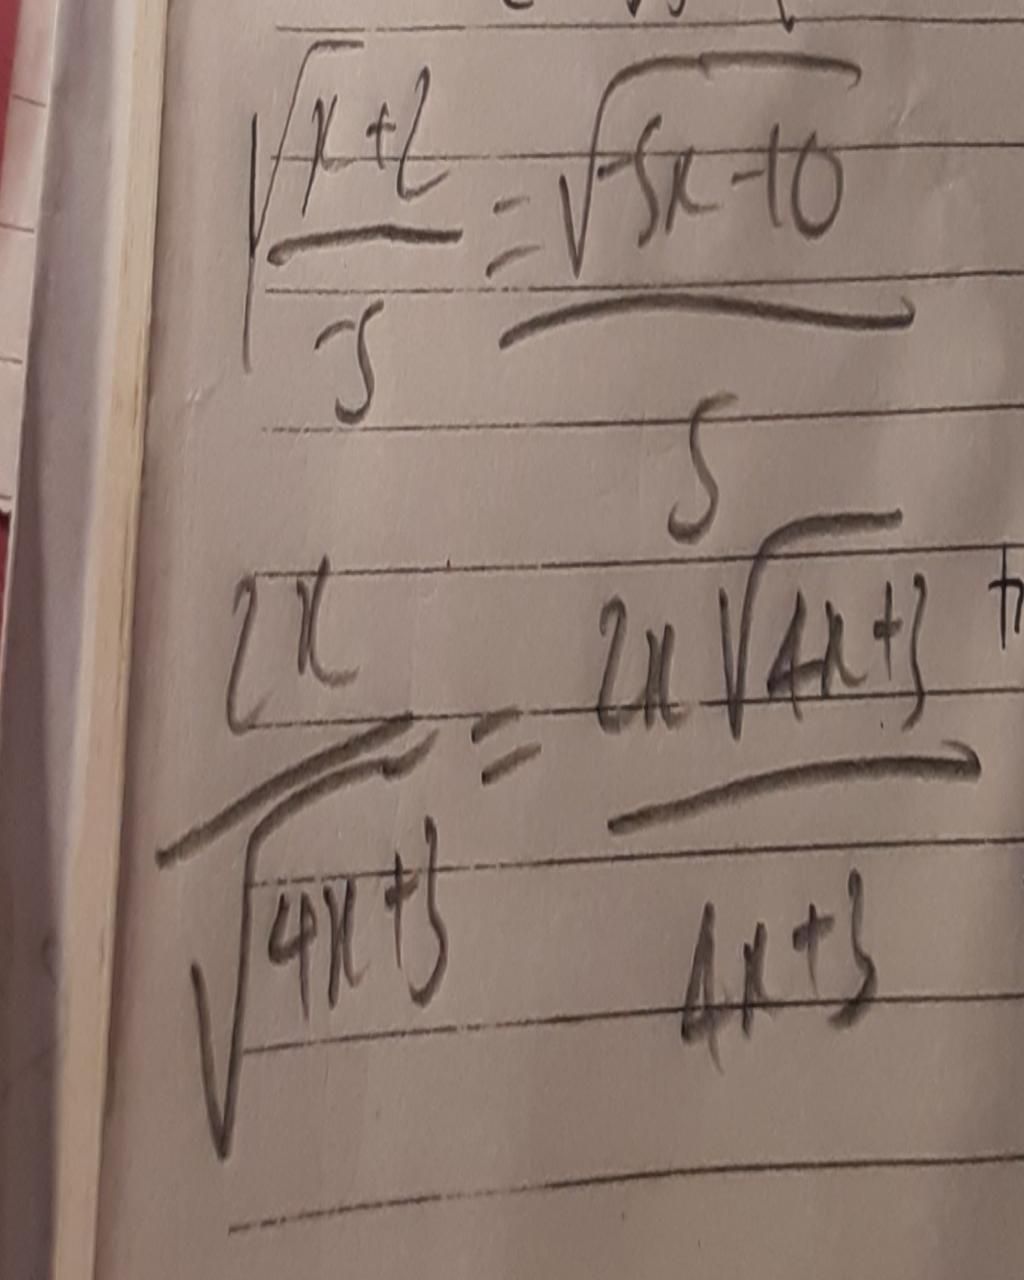 √(x+2)/-5 = √(-5x-10)/5
2x/√(4x+3) = 2x√(4x+3)/4x+3